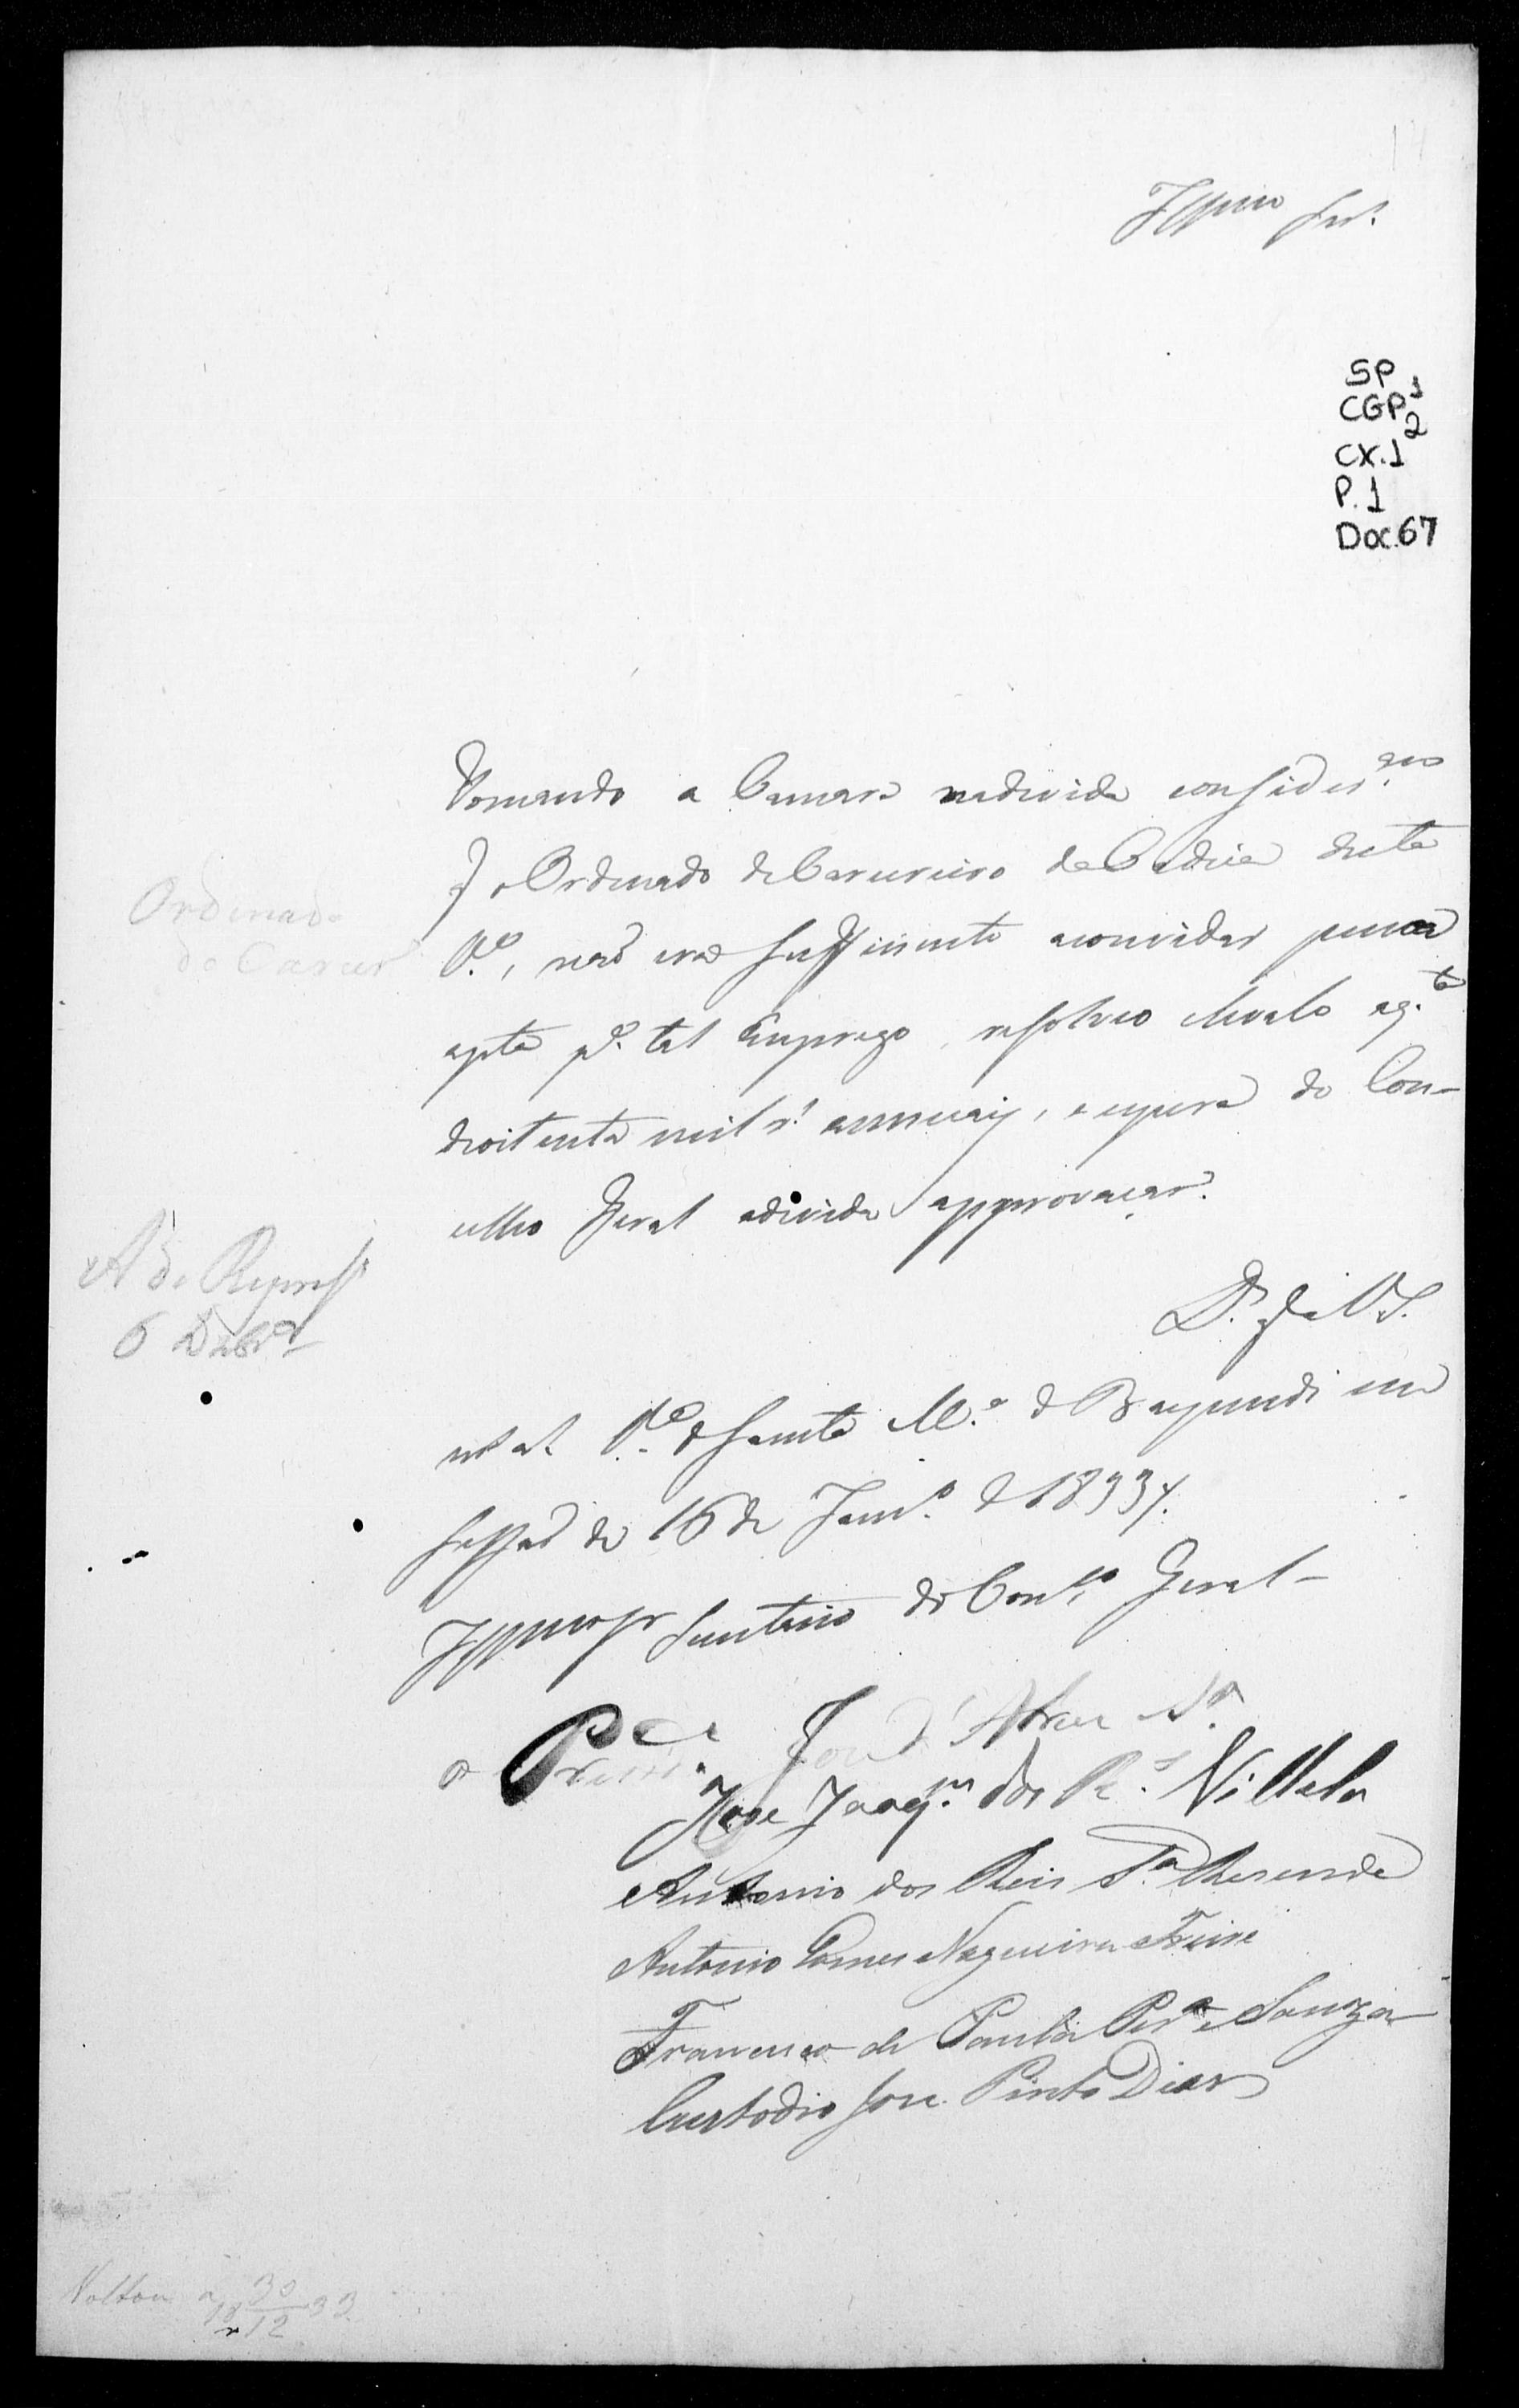 Illmo Snr.
SP
CGP 1
2
CX.1
P.1
Doc.67
Tomando a Camara nadivida considerção
q̃ o Ordenado do Carcereiro da Cadeia desta
V.ª, não era sufficiente aconvidar pessoa
apta p.ª tal Emprego, resolveo elevalo aq.ta
deoitenta mil r.s annuaes, e espera do Con-
celho Geral adivida approvação.
Ordenado
do Carcer
A de Repres
6 Dzbro
D.s G.e a V.S.
V.ª de Santa M.ª de Baependi em
Sessão de 16 de Jan.ro de 1833
Illmo Snr Secretario do Cons.o Geral
o Prez.e
Jose Joaq.m dos R.s Villela
Antonio dos Reis S.ª Resende
Antonio Gomes Nogueira Freire
Francisco de Paula Per.ª e Souza
Custodio Jose Pinto Dias
Voltou a 30
12 33